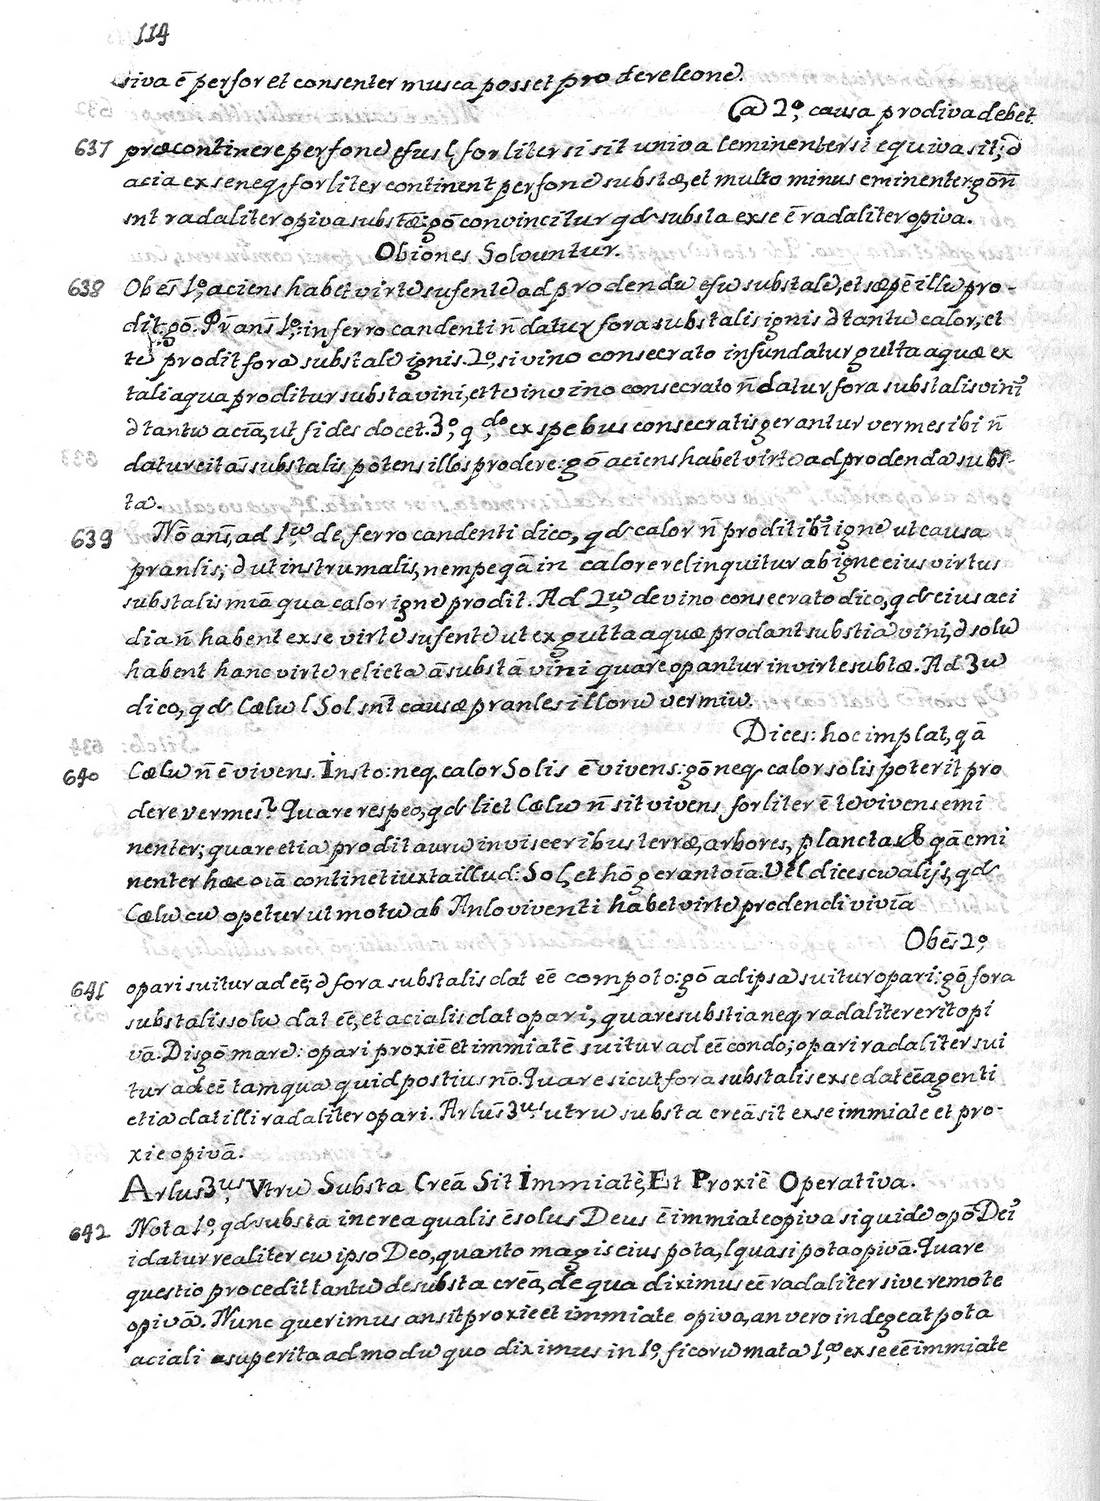 114
siva ē perfor et consenter musca posset prodere leone.
@ 2.º causa prodiva debet
637 præcontinere perfone efus l forliter si sit univa l eminenter si equiva sit; d
acia ex se neq forliter continent perfone substæ, et multo minus eminenter: gō n̄
snt radaliter opiva substæ: gō convincitur qd substa ex se ē radaliter opiva.
Obiones Solvuntur.
638 Obes 1.º aciens habet virte sufente ad prodendu efu substale, et sæpē illu pro-
dit: gō. Pr̄ ans̄ 1.º in ferro candenti n̄ datur fora substalis ignis d tantu calor, et
te prodit fora substale ignis. 2.º si vino consecrato infundatur gutta aquæ ex
tali aqua proditur substa vini, et te in vino consecrato n̄ datur fora substalis vini
d tantu aciā, ut fides docet. 3.º q.do ex spebus consecratis gerantur vermes ibi n̄
datur citās substalis potens illos prodere: gō aciens habet virte ad prodenda subs-
ta.
639 Nō ans̄, ad 1.u de ferro candenti dico, qd calor n̄ prodit ibi igne ut causa
pranlis; d ut instrumalis, nempe qā in calore relinquitur ab igne eius virtus
substalis miā qua calor igne prodit. Ad 2.u de vino consecrato dico, qd eius aci
dia n̄ habent ex se virte sufente ut ex gutta aquæ prodant substia vini, d solu
habent hanc virte relicta ā substā vini quare opantur in virte subtæ. Ad 3.u
dico, qd Cælu l Sol snt causæ pranles illoru vermiu.
Dices: hoc implat, qā
640 Cælu n̄ ē vivens. Insto: neq calor Solis ē vivens: gō neq calor solis poterit pro
dere vermes? Quare respeo, qd liet Cælu n̄ sit vivens, forliter ē te vivens emi
nenter; quare etia prodit auru in visceribus terræ, arbores, planctas & qā emi
nenter hæc oīā continet iuxta illud: Sol et hō gerant oīā. Vel dices cu alijs, qd
Cælu cu opetur ut motu ab Anlo viventi habet virte prodendi viviā
Obes 2.º
641 opari suitur ad eē; d fora substalis dat eē compoto: gō ad ipsa suitur opari: gō fora
substalis solu dat eē, et acialis dat opari, quare substia neq radaliter erit opi
vā. Disgō mare: opari proxiē et immiatē suitur ad eē condo; opari radaliter sui
tur ad eē tamqua quid postius nō. Quare sicut fora substalis ex se dat eē agenti
etia dat illi radaliter opari. Arlus 3.us utru substa creā sit ex se immiate et pro-
xie opivā.
Arlus 3.us Vtru Substa Creā Sit Immiatē, Et Proxiē Operativa.
642 Nota 1.º, qd substa increa qualis ē solus Deus ē immiate opiva siquide opō Dei
idatur realiter cu ipso Deo, quanto magis eius pota, l quasi pota opivā. Quare
questio procedit tantu de substa creā, de qua diximus eē radaliter sive remote
opivā. Nunc querimus an sit proxie et immiate opiva, an vero indegeat pota
aciali superita ad modu quo diximus in 1.º ficoru mata 1.æ ex se eē immiate